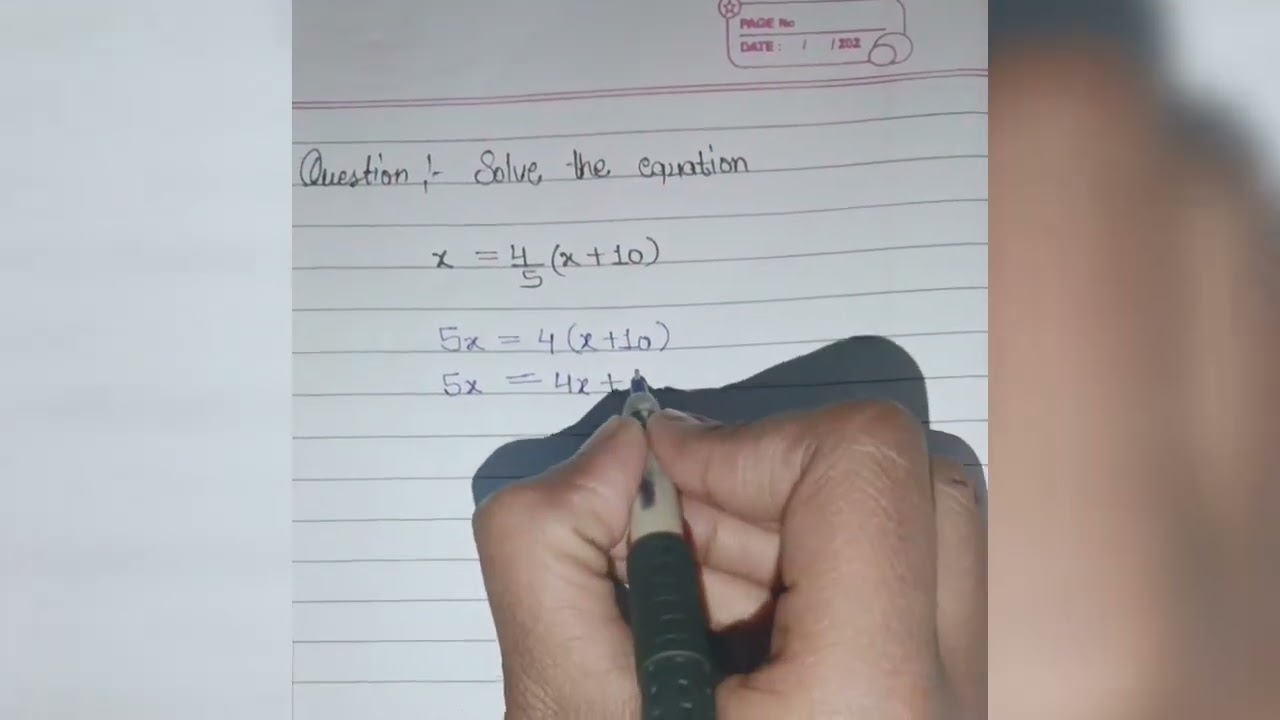 PAGE No
DATE : / / 202
Question :- Solve the equation
x = 4/5 (x+10)
5x = 4 (x+10)
5x = 4x +